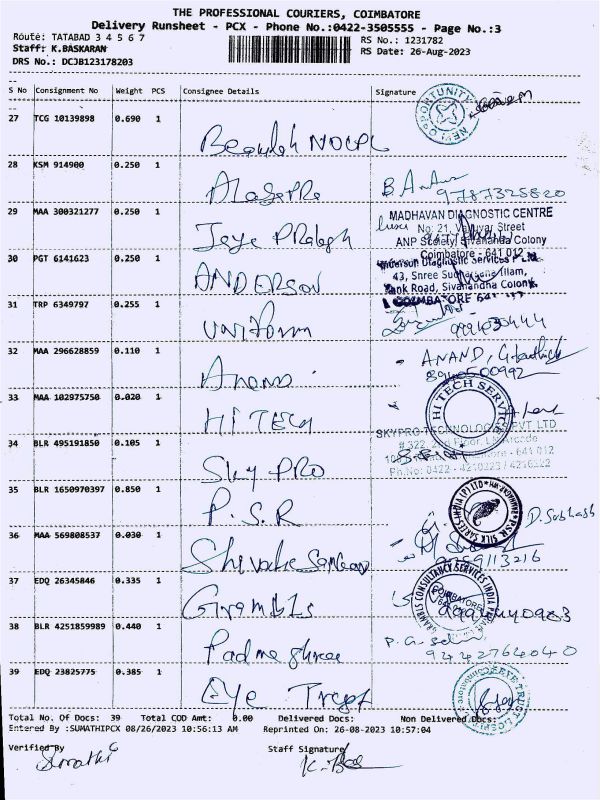 THE PROFESSIONAL COURIERS, COIMBATORE
Delivery Runsheet - PCX - Phone No.:0422-3505555 - Page No.:3
Route: TATABAD 3 4 5 6 7
RS No.: 1231782
Staff: K.BASKARAN
RS Date: 26-Aug-2023
DRS No.: DCJB123178203
S No Consignment No Weight PCS Consignee Details Signature
27 TCG 10139898 0.690 1
NOCPL
28 KSM 914900 0.250 1
B.
9787325820
29 MAA 300321277 0.250 1
MADHAVAN DIAGNOSTIC CENTRE
No: 21, Street
ANP Society, Sivananda Colony
Coimbatore - 641 012
30 PGT 6141623 0.250 1
ANDERSON
Anderson Diagnostic Services P
43, Sivanandha Colony
COIMBATORE 641
31 TRP 6349797 0.255 1
Uniform
32 MAA 296628859 0.110 1
Anand
ANAND,
33 MAA 102975750 0.020 1
HI TECH
HI TECH SERVICE
34 BLR 495191850 0.105 1
Sky PRO
SKYPRO TECHNOLOGIES PVT LTD
# 322, Floor,
641 012
Ph.No: 0422 - 4210223 / 4216322
35 BLR 1650970397 0.850 1
P.S.R
P.S.R SILK SAREES INDIA (P) LTD
D. Subhash
36 MAA 569808537 0.030 1
37 EDQ 26345846 0.335 1
CONSULTANCY SERVICES INDIA
COIMBATORE
38 BLR 4251859989 0.440 1
Padmashree
9442764040
39 EDQ 23825775 0.385 1
Eye Trust
Total No. Of Docs: 39 Total COD Amt: 0.00 Delivered Docs: Non Delivered Docs:
Entered By :SUMATHIPCX 08/26/2023 10:56:13 AM Reprinted On: 26-08-2023 10:57:04
Verified By
Staff Signature
Sumathi